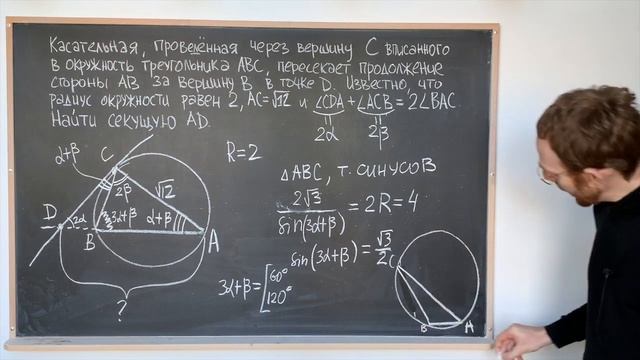 Касательная, проведённая через вершину C вписанного
в окружность треугольника ABC, пересекает продолжение
стороны AB за вершину B в точке D. Известно, что
радиус окружности равен 2, AC=√12 и ∠CDA+∠ACB=2∠BAC.
Найти секущую AD.
2α 2β
α+β
C
R=2
△ABC, т. синусов
2β
√12
2√3/sin(3α+β) = 2R=4
D
2α
3α+β
α+β
B
A
sin(3α+β)=√3/2
C
3α+β=[60°
120°
?
B A